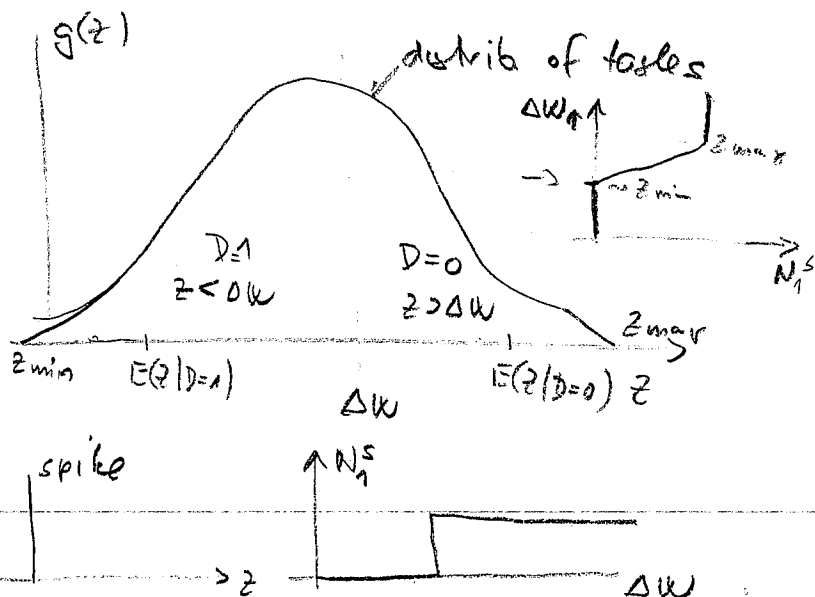 g(z)
distrib of tastes
ΔW₁
z max
→ ~z min
N₁ˢ
D=1
z < ΔW
D=0
z > ΔW
z max
z min E(z|D=1) ΔW E(z|D=0) z
spike
N₁ˢ
z ΔW